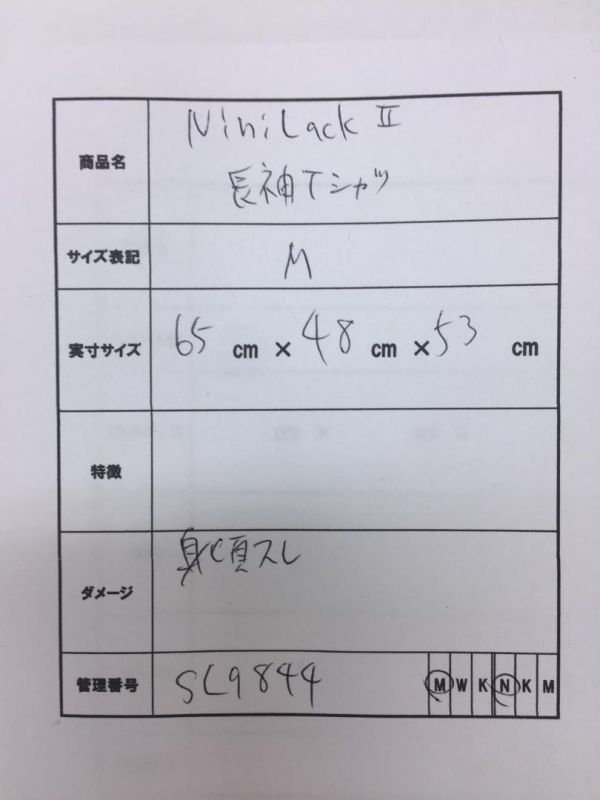 商品名 NiniLack II
長袖Tシャツ
サイズ表記 M
実寸サイズ 65 cm × 48 cm × 53 cm
特徴
ダメージ 身頃スレ
管理番号 SL9844 M W K N K M